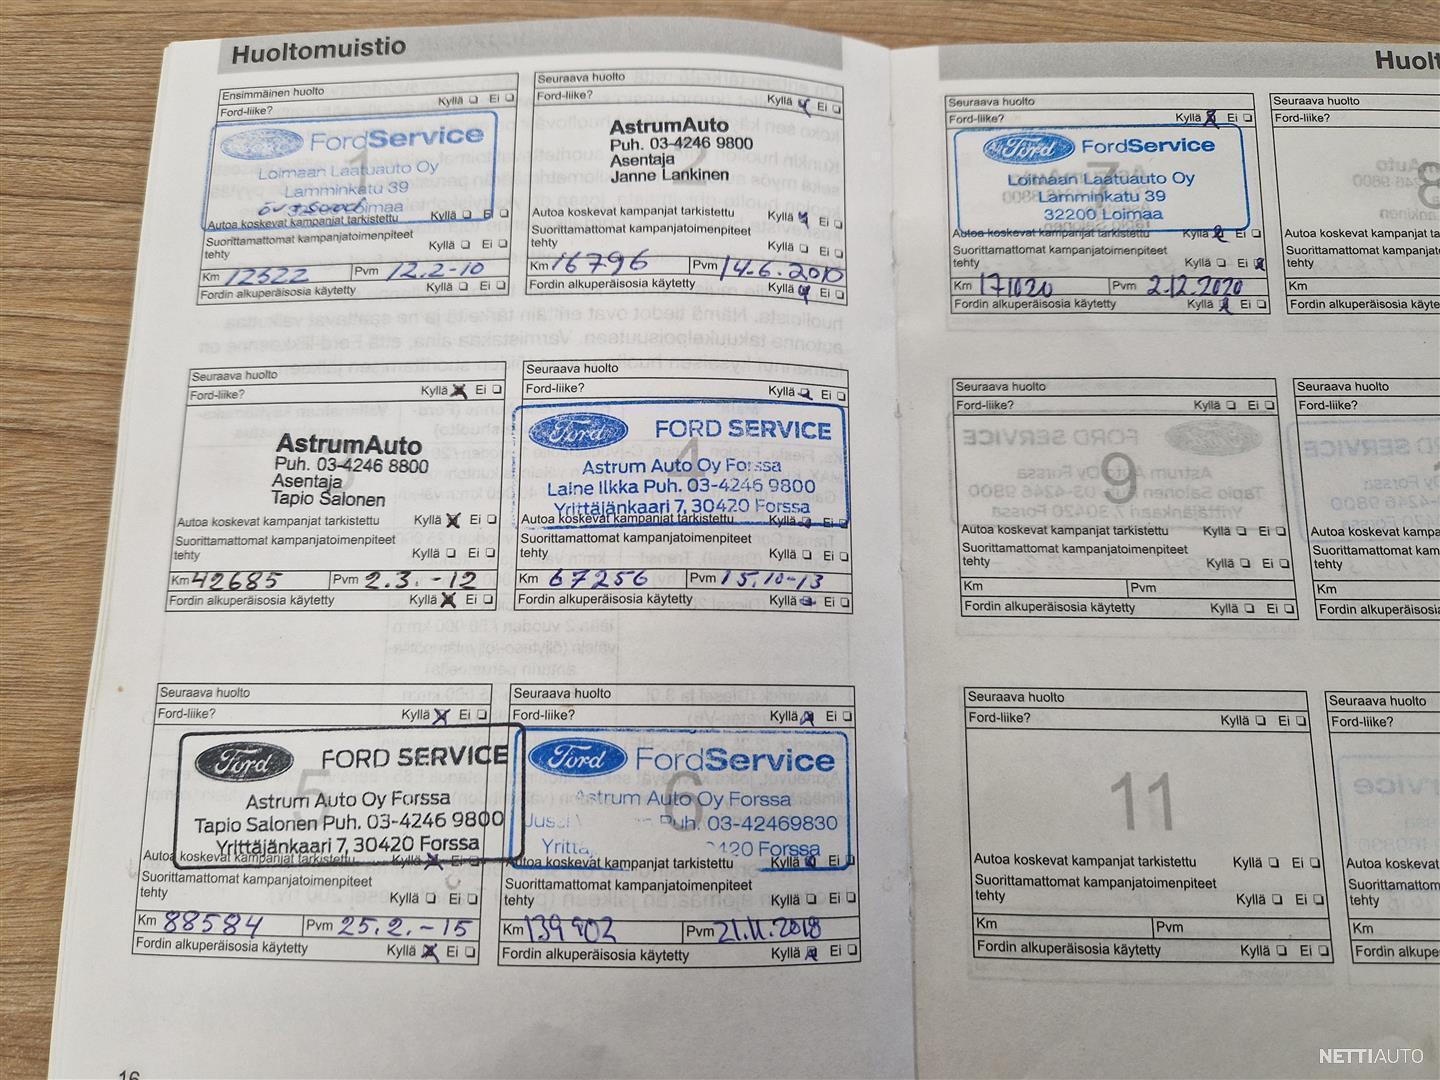 Huoltomuistio
Ensimmäinen huolto
Ford-liike? Kyllä Ei
Ford FordService
1
Loimaan Laatuauto Oy
Lamminkatu 39
32200 Loimaa
Autoa koskevat kampanjat tarkistettu Kyllä Ei
Suorittamattomat kampanjatoimenpiteet
tehty Kyllä Ei
Km 12522 Pvm 12.2-10
Fordin alkuperäisosia käytetty Kyllä Ei
Seuraava huolto
Ford-liike? Kyllä Ei
2
AstrumAuto
Puh. 03-4246 9800
Asentaja
Janne Lankinen
Autoa koskevat kampanjat tarkistettu Kyllä Ei
Suorittamattomat kampanjatoimenpiteet
tehty Kyllä Ei
Km 16796 Pvm 14.6.2010
Fordin alkuperäisosia käytetty Kyllä Ei
Seuraava huolto
Ford-liike? Kyllä Ei
3
AstrumAuto
Puh. 03-4246 8800
Asentaja
Tapio Salonen
Autoa koskevat kampanjat tarkistettu Kyllä Ei
Suorittamattomat kampanjatoimenpiteet
tehty Kyllä Ei
Km 42685 Pvm 2.3.-12
Fordin alkuperäisosia käytetty Kyllä Ei
Seuraava huolto
Ford-liike? Kyllä Ei
Ford FORD SERVICE
4
Astrum Auto Oy Forssa
Laine Ilkka Puh. 03-4246 9800
Yrittäjänkaari 7, 30420 Forssa
Autoa koskevat kampanjat tarkistettu Kyllä Ei
Suorittamattomat kampanjatoimenpiteet
tehty Kyllä Ei
Km 67256 Pvm 15.10-13
Fordin alkuperäisosia käytetty Kyllä Ei
Seuraava huolto
Ford-liike? Kyllä Ei
Ford FORD SERVICE
5
Astrum Auto Oy Forssa
Tapio Salonen Puh. 03-4246 9800
Yrittäjänkaari 7, 30420 Forssa
Autoa koskevat kampanjat tarkistettu Kyllä Ei
Suorittamattomat kampanjatoimenpiteet
tehty Kyllä Ei
Km 88584 Pvm 25.2.-15
Fordin alkuperäisosia käytetty Kyllä Ei
Seuraava huolto
Ford-liike? Kyllä Ei
Ford FordService
6
Astrum Auto Oy Forssa
Puh. 03-42469830
Forssa
Autoa koskevat kampanjat tarkistettu Kyllä Ei
Suorittamattomat kampanjatoimenpiteet
tehty Kyllä Ei
Km 139902 Pvm 21.11.2018
Fordin alkuperäisosia käytetty Kyllä Ei
16
Huolt
Seuraava huolto
Ford-liike? Kyllä Ei
Ford FordService
7
Loimaan Laatuauto Oy
Lamminkatu 39
32200 Loimaa
Autoa koskevat kampanjat tarkistettu Kyllä Ei
Suorittamattomat kampanjatoimenpiteet
tehty Kyllä Ei
Km 171020 Pvm 2.12.2020
Fordin alkuperäisosia käytetty Kyllä Ei
Seuraava huolto
Ford-liike?
8
Autoa koskevat kampanjat
Suorittamattomat kampan
tehty
Km
Fordin alkuperäisosia
Seuraava huolto
Ford-liike? Kyllä Ei
9
Autoa koskevat kampanjat tarkistettu Kyllä Ei
Suorittamattomat kampanjatoimenpiteet
tehty Kyllä Ei
Km Pvm
Fordin alkuperäisosia käytetty Kyllä Ei
Seuraava huolto
Ford-liike?
Autoa koskevat kampa
Suorittamattomat kam
tehty
Km
Fordin alkuperäisosi
Seuraava huolto
Ford-liike? Kyllä Ei
11
Autoa koskevat kampanjat tarkistettu Kyllä Ei
Suorittamattomat kampanjatoimenpiteet
tehty Kyllä Ei
Km Pvm
Fordin alkuperäisosia käytetty Kyllä Ei
Seuraava huolto
Ford-liike?
Autoa koskevat kam
Suorittamattomat ka
tehty
Km
Fordin alkuperäiso
NETTIAUTO